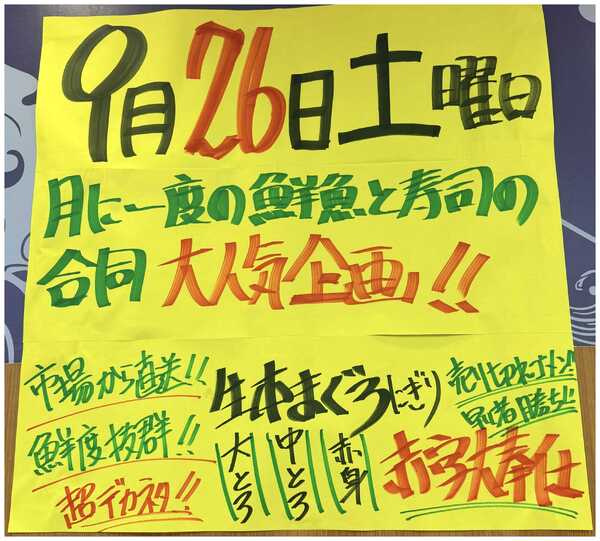 9月26日土曜日
月に一度の鮮魚と寿司の
合同大人気企画!!
市場から直送!!
鮮度抜群!!
超デカネタ!!
生本まぐろにぎり
大とろ
中とろ
赤身
売り切れゴメン!
早者勝ち!!
赤字大奉仕